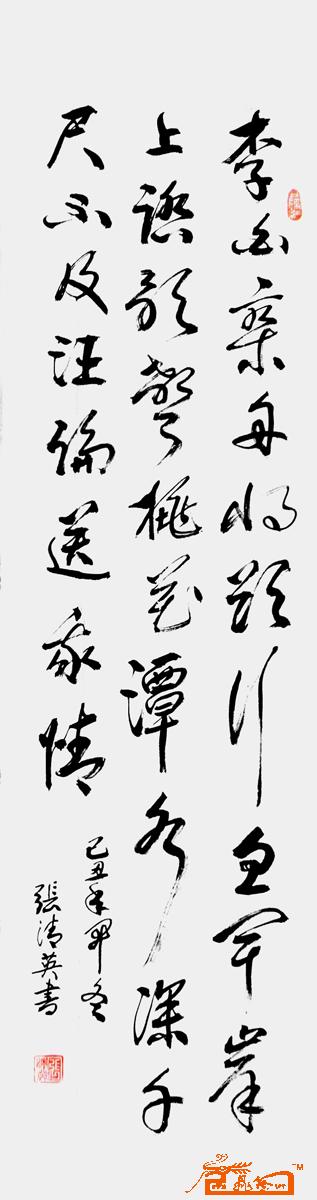 李白乘舟将欲行忽闻岸
上踏歌聲桃花潭水深千
尺不及汪倫送我情
己丑年冬
張清英書